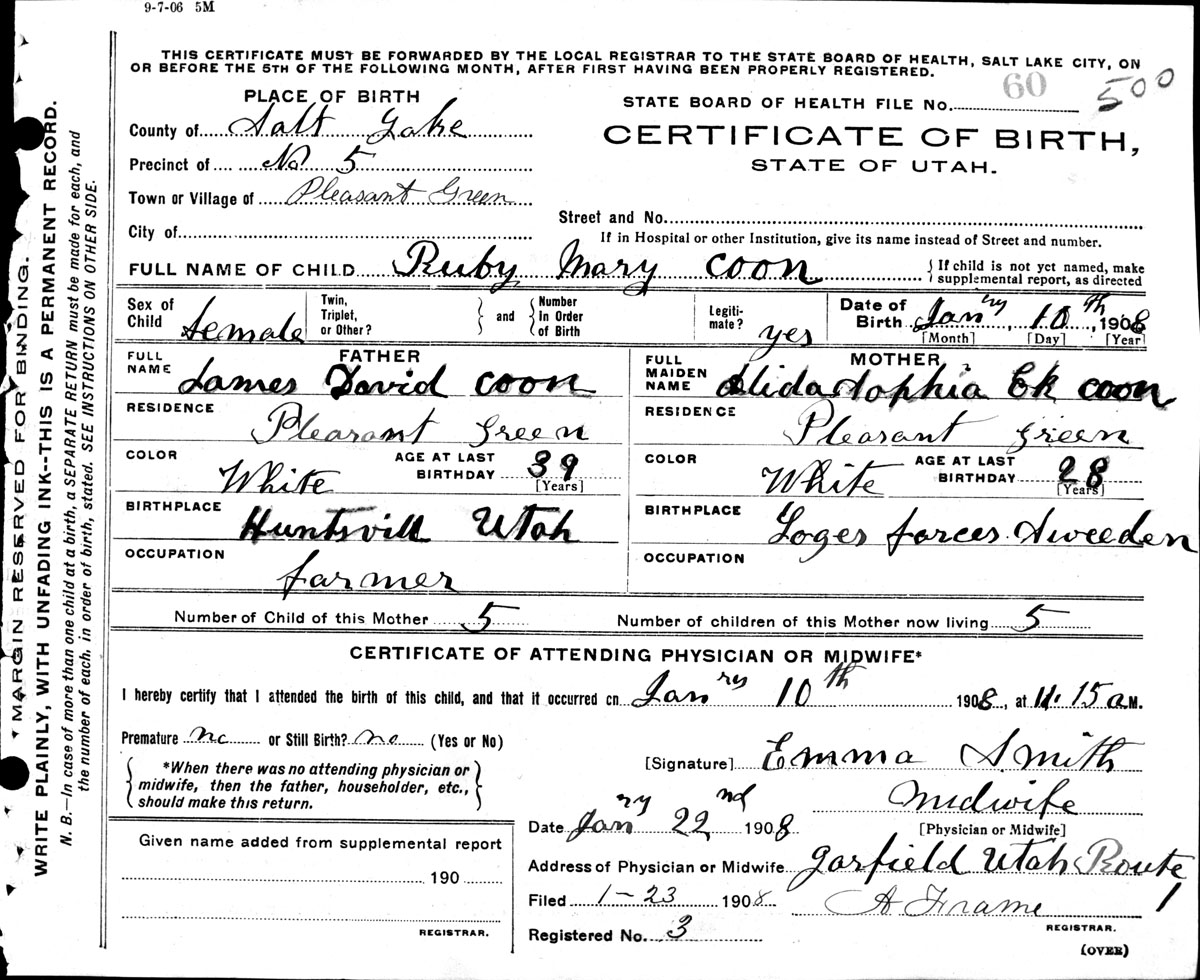 9-7-06 5M
THIS CERTIFICATE MUST BE FORWARDED BY THE LOCAL REGISTRAR TO THE STATE BOARD OF HEALTH, SALT LAKE CITY, ON
OR BEFORE THE 5TH OF THE FOLLOWING MONTH, AFTER FIRST HAVING BEEN PROPERLY REGISTERED.
PLACE OF BIRTH
STATE BOARD OF HEALTH FILE No. 60 500
County of Salt Lake
CERTIFICATE OF BIRTH,
STATE OF UTAH.
Precinct of No 5
Town or Village of Pleasant Green
Street and No.
City of
If in Hospital or other Institution, give its name instead of Street and number.
FULL NAME OF CHILD Ruby Mary Coon
{ If child is not yet named, make
supplemental report, as directed
Sex of Child female
Twin, Triplet, or Other? } and { Number In Order of Birth
Legiti-mate? yes
Date of Birth Janry 10th, 1908
[Month] [Day] [Year]
FATHER
FULL NAME James David Coon
MOTHER
FULL MAIDEN NAME Alida Sophia Ek Coon
RESIDENCE Pleasant Green
RESIDENCE Pleasant Green
COLOR White AGE AT LAST BIRTHDAY 39 [Years]
COLOR White AGE AT LAST BIRTHDAY 28 [Years]
BIRTHPLACE Huntsvill Utah
BIRTHPLACE Loges forces Sweeden
OCCUPATION farmer
OCCUPATION
Number of Child of this Mother 5 Number of children of this Mother now living 5
CERTIFICATE OF ATTENDING PHYSICIAN OR MIDWIFE*
I hereby certify that I attended the birth of this child, and that it occurred on Janry 10th 1908, at 11.15 a M.
Premature no or Still Birth? no (Yes or No)
[Signature] Emma Smith
{ *When there was no attending physician or
midwife, then the father, householder, etc.,
should make this return. }
Midwife
[Physician or Midwife]
Date Janry 22nd 1908
Given name added from supplemental report
190
REGISTRAR.
Address of Physician or Midwife Garfield Utah Route 1
Filed 1-23 1908 A Frame
REGISTRAR.
Registered No. 3
(OVER)
*MARGIN RESERVED FOR BINDING.
WRITE PLAINLY, WITH UNFADING INK--THIS IS A PERMANENT RECORD.
N. B.—In case of more than one child at a birth, a SEPARATE RETURN must be made for each, and
the number of each, in order of birth, stated. SEE INSTRUCTIONS ON OTHER SIDE.